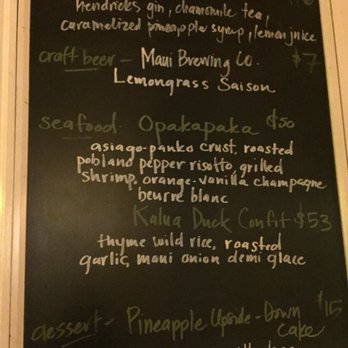 hendricks gin, chamomile tea,
caramelized pineapple syrup, lemon juice
craft beer - Maui Brewing Co. $7
Lemongrass Saison
seafood - Opakapaka $50
asiago-panko crust, roasted
poblano pepper risotto, grilled
shrimp, orange-vanilla champagne
beurre blanc
Kalua Duck Confit $53
thyme wild rice, roasted
garlic, maui onion demi glace
dessert - Pineapple Upside-Down $15
Cake